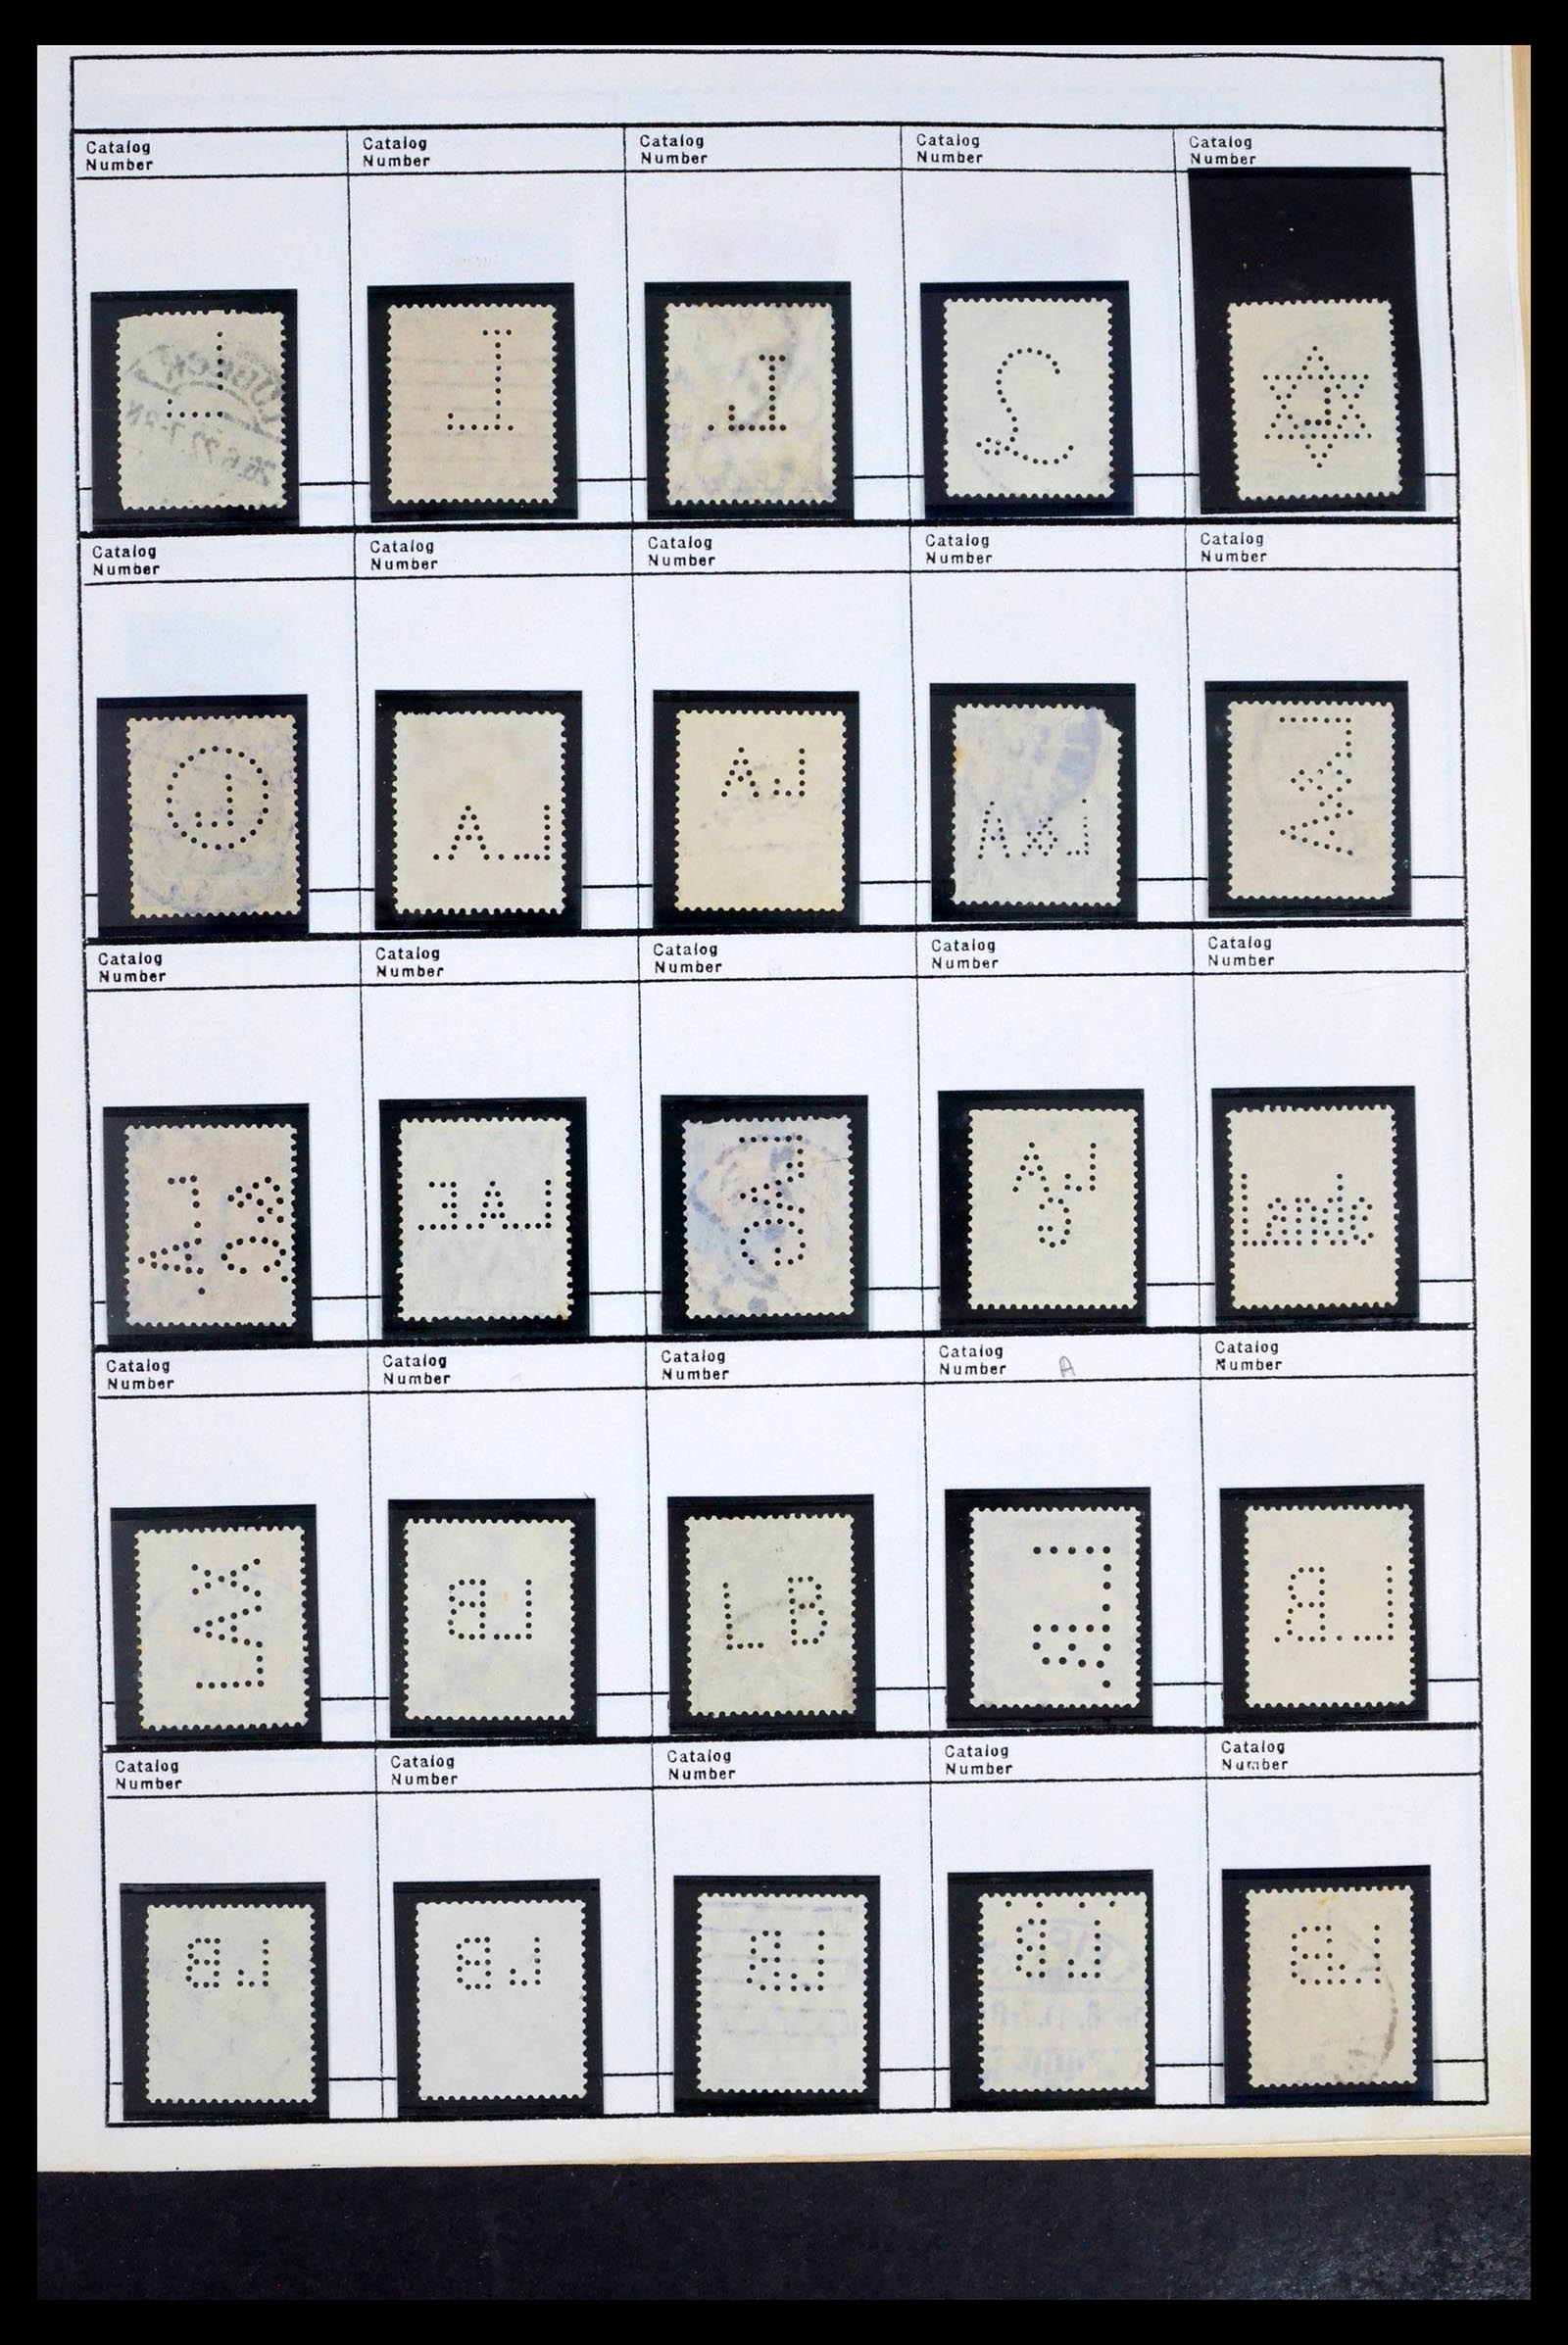 Catalog Number
Catalog Number
Catalog Number
Catalog Number
Catalog Number
L
L
L
L
L
Catalog Number
Catalog Number
Catalog Number
Catalog Number
Catalog Number
L
LA
LA
L&A
LA
Catalog Number
Catalog Number
Catalog Number
Catalog Number
Catalog Number
LA
&C
LAE
LAG
LA
G
Lande
Catalog Number
Catalog Number
Catalog Number
Catalog Number A
Catalog Number
LAX
LB
LB
LB
LB
Catalog Number
Catalog Number
Catalog Number
Catalog Number
Catalog Number
LB
LB
LB
LB
LB